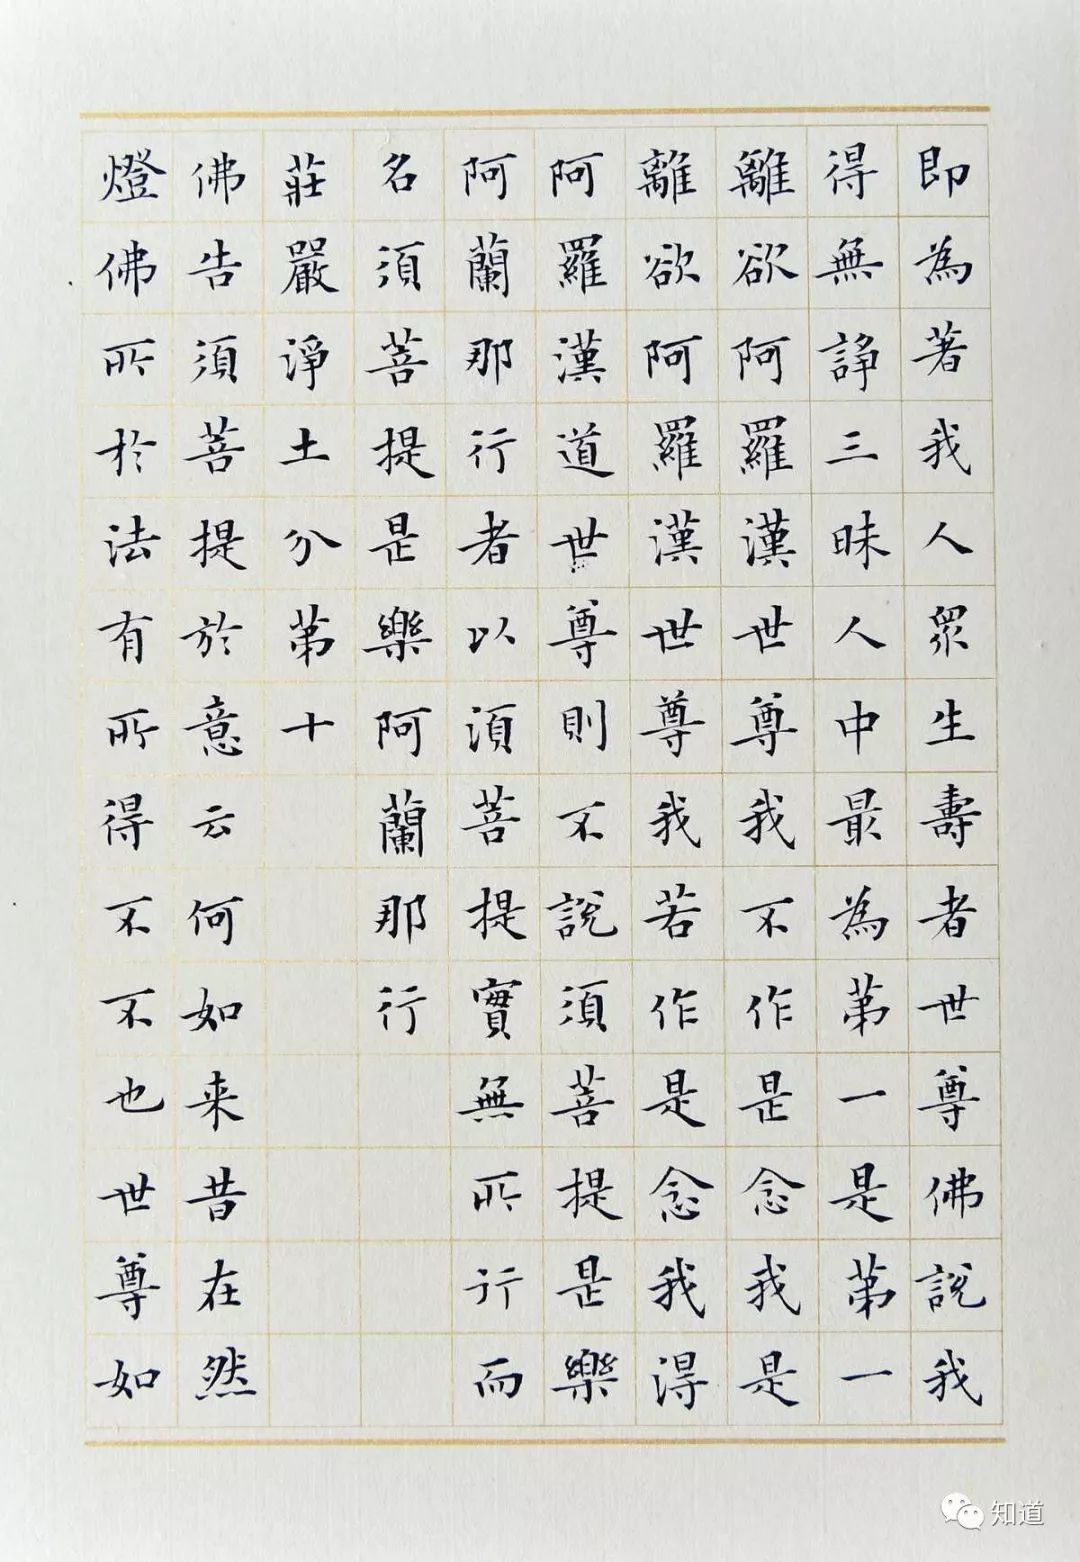 即為著我人眾生壽者世尊佛說我
得無諍三昧人中最為第一是第一
離欲阿羅漢世尊我不作是念我是
離欲阿羅漢世尊我若作是念我得
阿羅漢道世尊則不說須菩提是樂
阿蘭那行者以須菩提實無所行而
名須菩提是樂阿蘭那行
莊嚴淨土分第十
佛告須菩提於意云何如来昔在然
燈佛所於法有所得不不也世尊如
知道